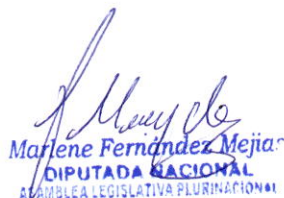 Marlene Fernández Mejia
DIPUTADA NACIONAL
ASAMBLEA LEGISLATIVA PLURINACIONAL